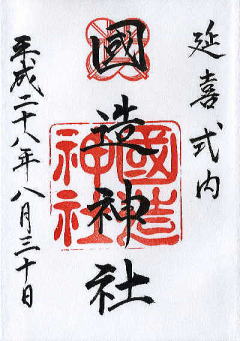 延喜式内
國造神社
國造神社
平成二十八年八月三十日